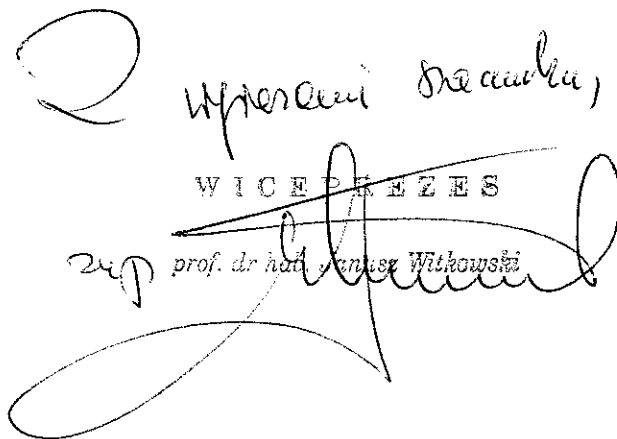 Z wyrazami szacunku,
WICEPREZES
prof. dr hab. Janusz Witkowski